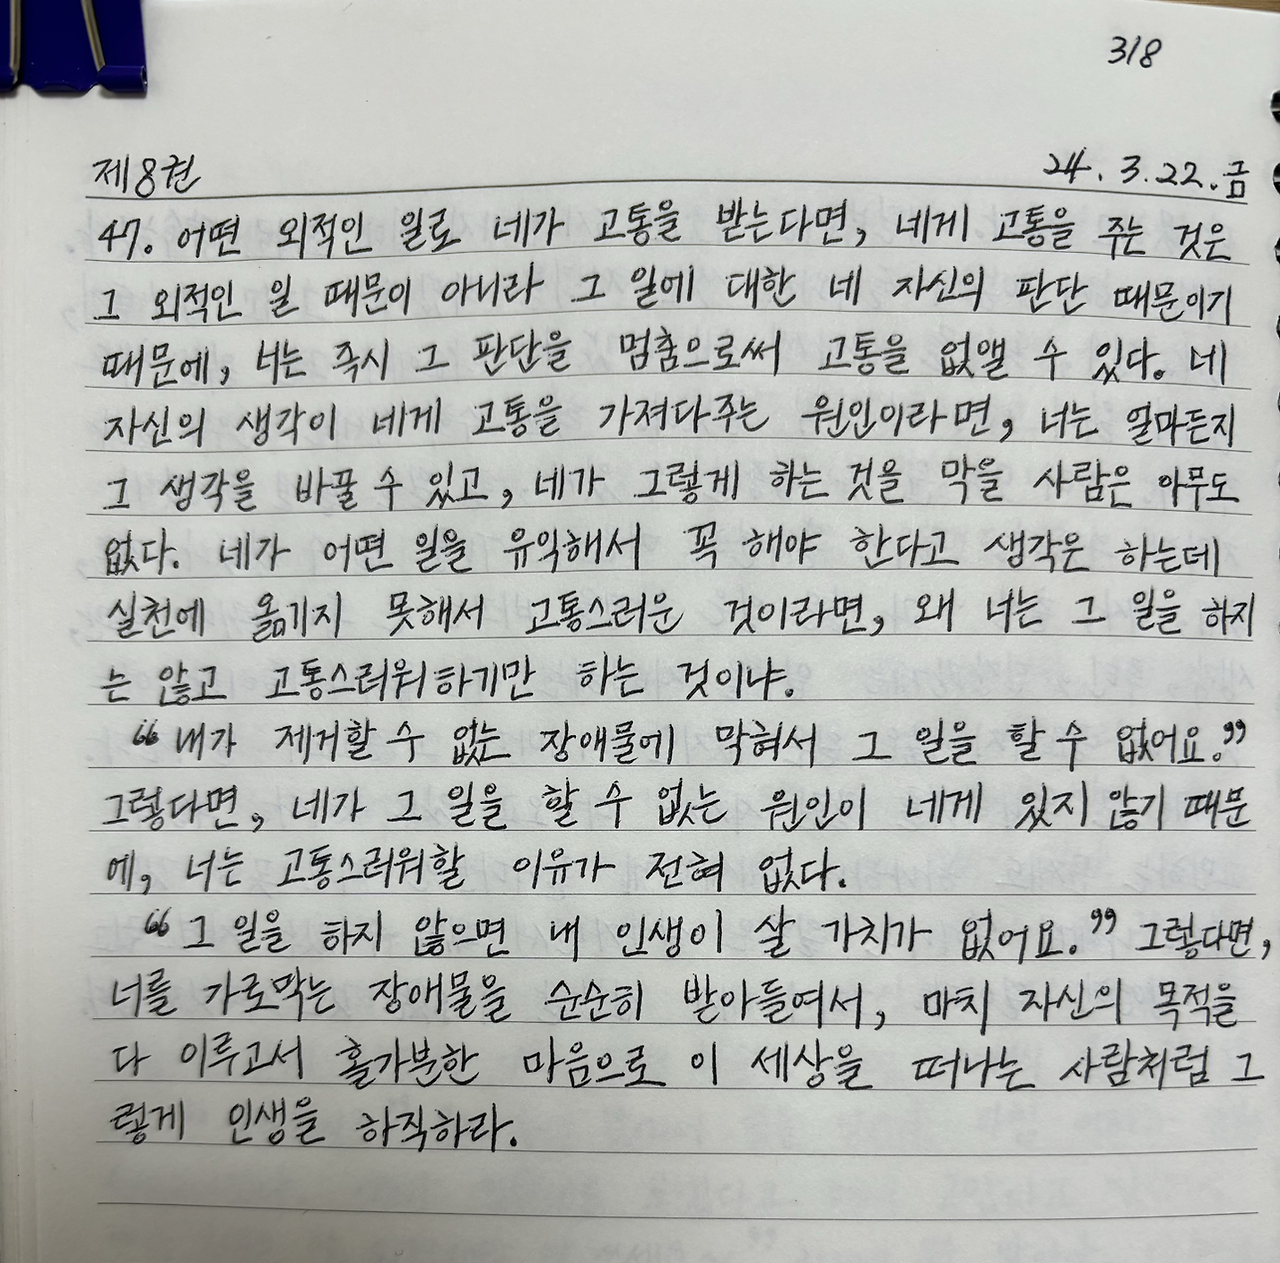 318
제8권 24.3.22.금
47. 어떤 외적인 일로 네가 고통을 받는다면, 네게 고통을 주는 것은
그 외적인 일 때문이 아니라 그 일에 대한 네 자신의 판단 때문이기
때문에, 너는 즉시 그 판단을 멈춤으로써 고통을 없앨 수 있다. 네
자신의 생각이 네게 고통을 가져다주는 원인이라면, 너는 얼마든지
그 생각을 바꿀 수 있고, 네가 그렇게 하는 것을 막을 사람은 아무도
없다. 네가 어떤 일을 유익해서 꼭 해야 한다고 생각은 하는데
실천에 옮기지 못해서 고통스러운 것이라면, 왜 너는 그 일을 하지
는 않고 고통스러워하기만 하는 것이냐.
“내가 제거할 수 없는 장애물에 막혀서 그 일을 할 수 없어요.”
그렇다면, 네가 그 일을 할 수 없는 원인이 네게 있지 않기 때문
에, 너는 고통스러워할 이유가 전혀 없다.
“그 일을 하지 않으면 내 인생이 살 가치가 없어요.” 그렇다면,
너를 가로막는 장애물을 순순히 받아들여서, 마치 자신의 목적을
다 이루고서 홀가분한 마음으로 이 세상을 떠나는 사람처럼 그
렇게 인생을 하직하라.